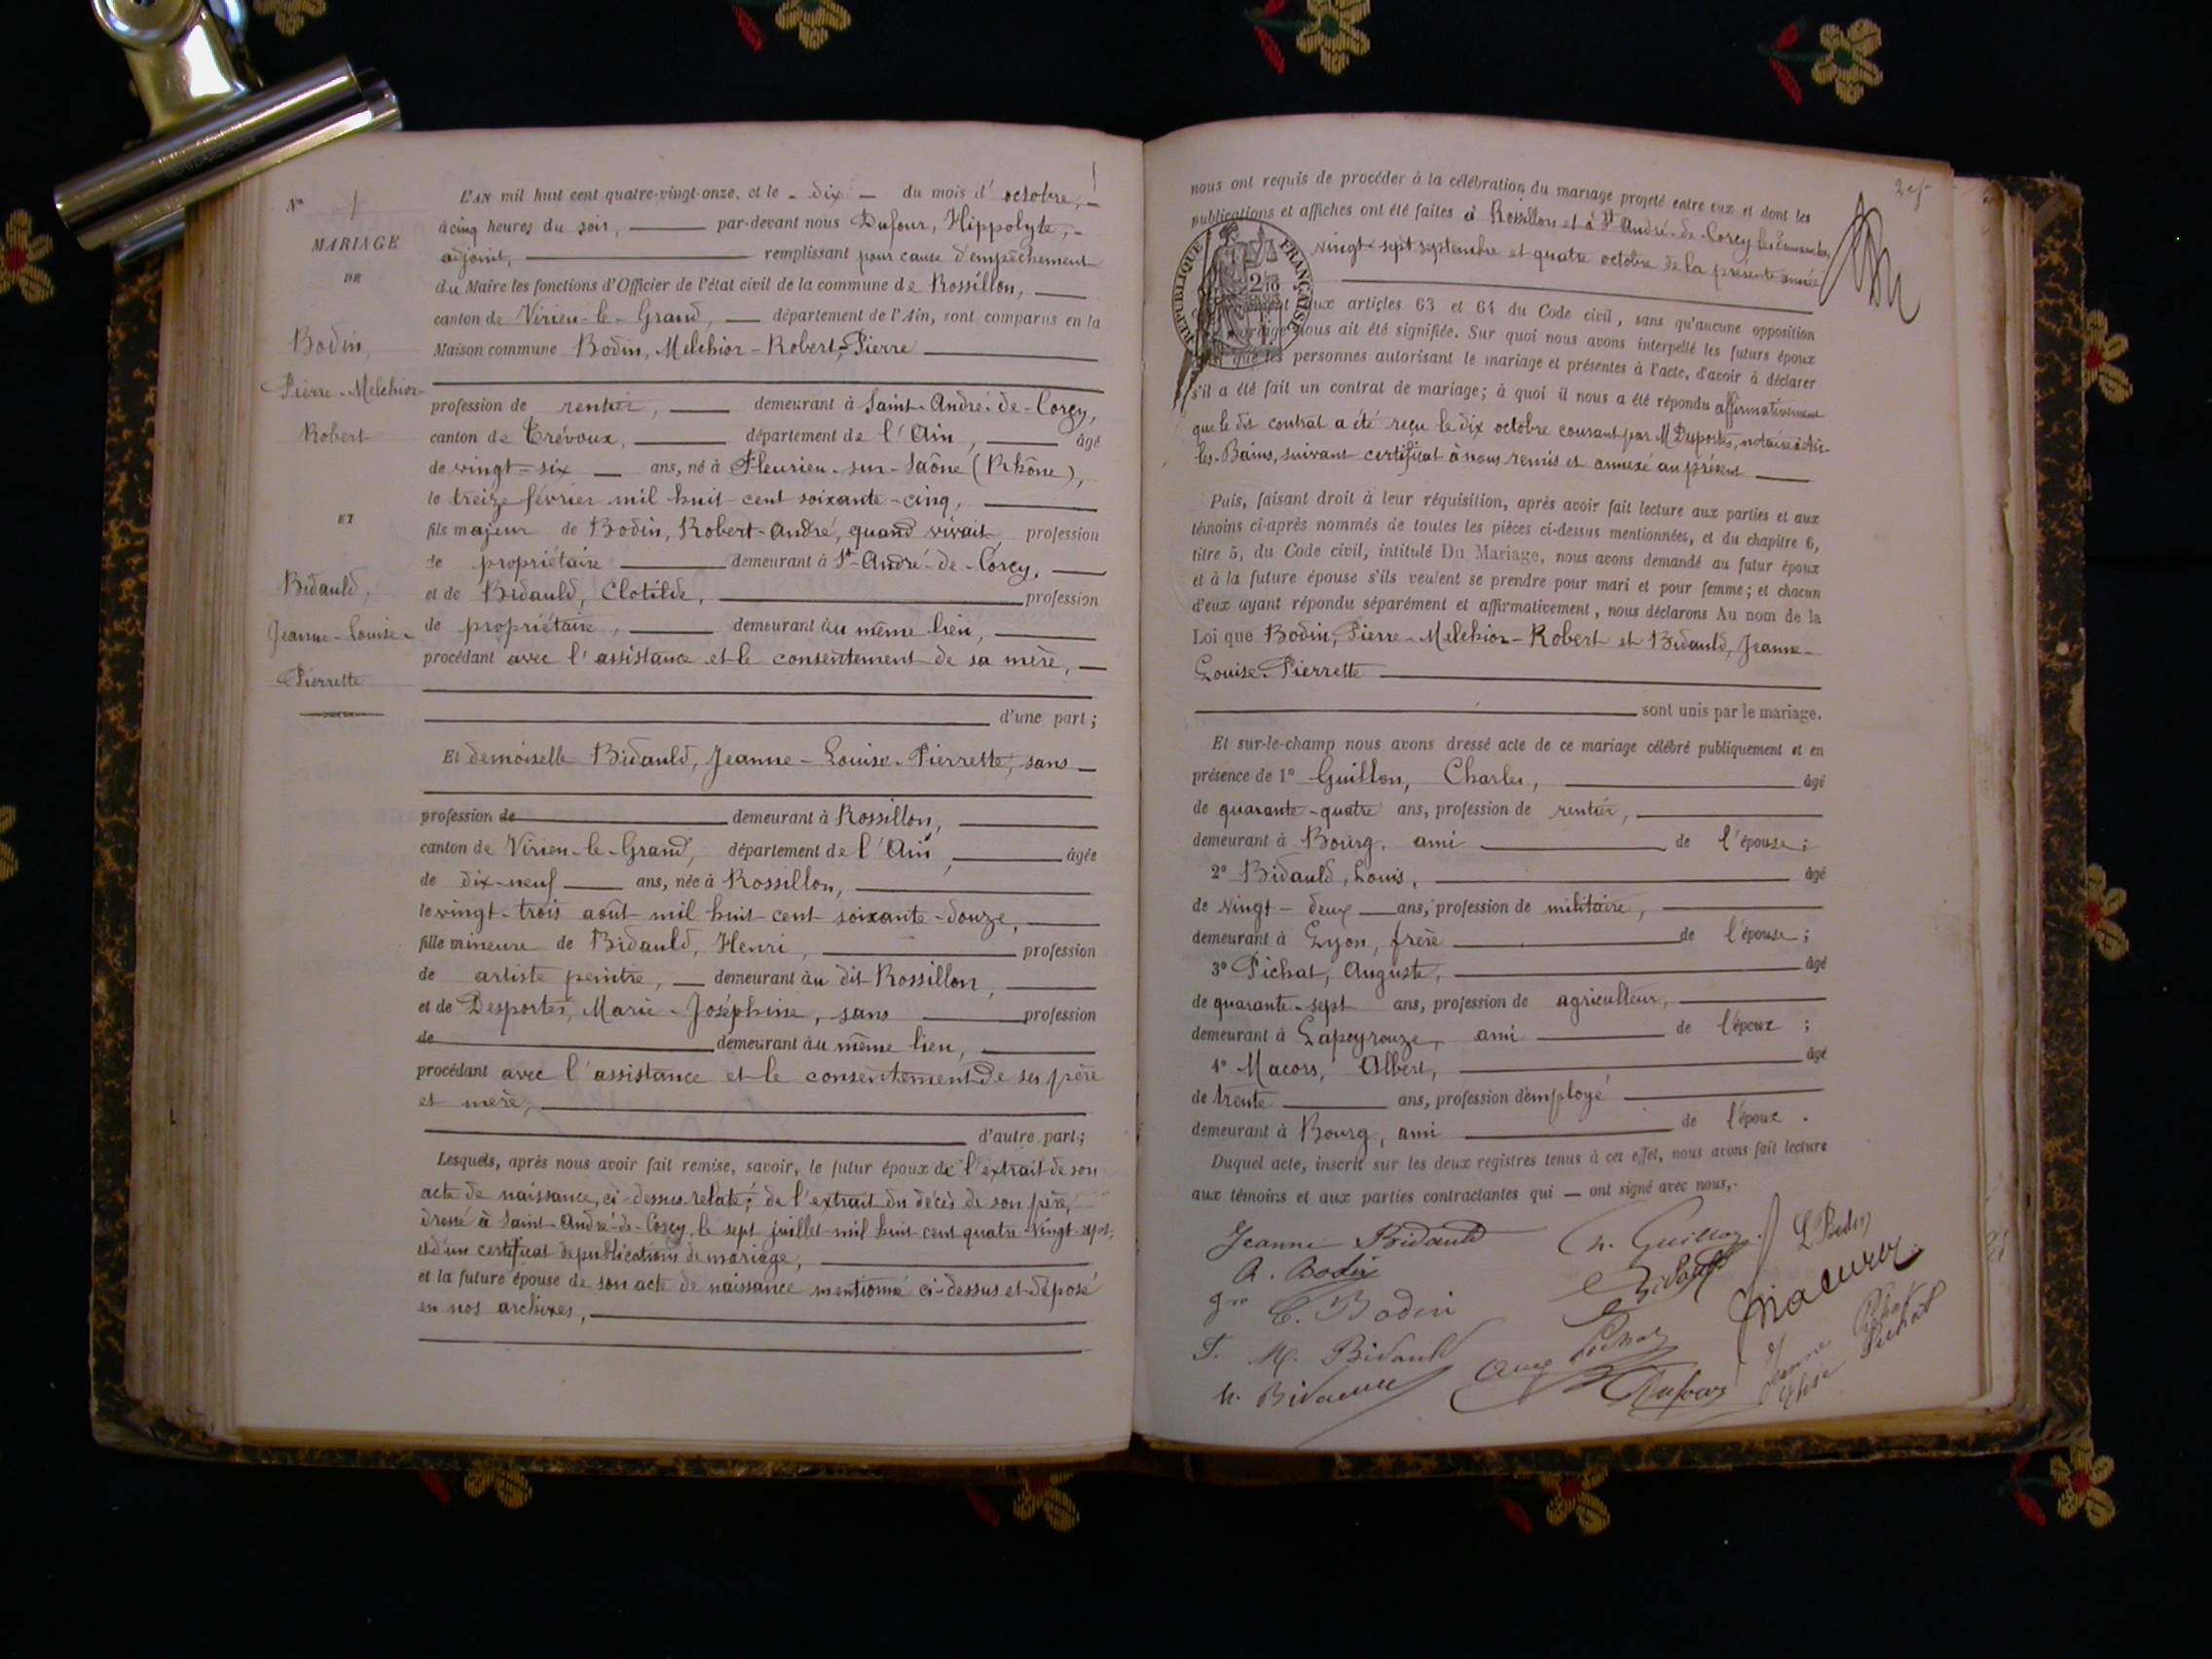 N° 1
MARIAGE
DE
Bodin,
Pierre-Melchior-
Robert
ET
Bidauld,
Jeanne-Louise-
Pierrette
L'AN mil huit cent quatre-vingt-onze, et le dix du mois d'octobre,
à cinq heures du soir, par-devant nous Dufour, Hippolyte,
adjoint, remplissant pour cause d'empêchement
du Maire les fonctions d'Officier de l'état civil de la commune de Rossillon,
canton de Virieu-le-Grand, département de l'Ain, sont comparus en la
Maison commune Bodin, Melchior-Robert-Pierre
profession de rentier, demeurant à Saint-André-de-Corcy,
canton de Trévoux, département de l'Ain, âgé
de vingt-six ans, né à Fleurieu-sur-Saône (Rhône),
le treize février mil huit cent soixante-cinq,
fils majeur de Bodin, Robert-André, quand vivait profession
de propriétaire demeurant à St-André-de-Corcy,
et de Bidauld, Clotilde, profession
de propriétaire, demeurant au même lieu,
procédant avec l'assistance et le consentement de sa mère,
d'une part;
Et demoiselle Bidauld, Jeanne-Louise-Pierrette, sans
profession de demeurant à Rossillon,
canton de Virieu-le-Grand, département de l'Ain, âgée
de dix-neuf ans, née à Rossillon,
le vingt-trois août mil huit cent soixante-douze,
fille mineure de Bidauld, Henri, profession
de artiste peintre, demeurant au dit Rossillon,
et de Desportes, Marie-Joséphine, sans profession
de demeurant au même lieu,
procédant avec l'assistance et le consentement de ses père
et mère,
d'autre part;
Lesquels, après nous avoir fait remise, savoir, le futur époux de l'extrait de son
acte de naissance, ci-dessus relaté; de l'extrait du décès de son père,
dressé à Saint-André-de-Corcy, le sept juillet mil huit cent quatre-vingt-sept,
et d'un certificat de publications de mariage,
et la future épouse de son acte de naissance mentionné ci-dessus et déposé
en nos archives,
nous ont requis de procéder à la célébration du mariage projeté entre eux et dont les
publications et affiches ont été faites à Rossillon et à St André-de-Corcy les Dimanches
vingt-sept septembre et quatre octobre de la présente année
RÉPUBLIQUE FRANÇAISE
aux articles 63 et 64 du Code civil, sans qu'aucune opposition
nous ait été signifiée. Sur quoi nous avons interpellé les futurs époux
que les personnes autorisant le mariage et présentes à l'acte, d'avoir à déclarer
s'il a été fait un contrat de mariage; à quoi il nous a été répondu affirmativement
que le dit contrat a été reçu le dix octobre courant par M Desportes, notaire à Aix-
les-Bains, suivant certificat à nous remis et annexé au présent
Puis, faisant droit à leur réquisition, après avoir fait lecture aux parties et aux
témoins ci-après nommés de toutes les pièces ci-dessus mentionnées, et du chapitre 6,
titre 5, du Code civil, intitulé Du Mariage, nous avons demandé au futur époux
et à la future épouse s'ils veulent se prendre pour mari et pour femme; et chacun
d'eux ayant répondu séparément et affirmativement, nous déclarons Au nom de la
Loi que Bodin, Pierre-Melchior-Robert et Bidauld, Jeanne-
Louise-Pierrette
sont unis par le mariage.
Et sur-le-champ nous avons dressé acte de ce mariage célébré publiquement et en
présence de 1° Guillon, Charles, âgé
de quarante-quatre ans, profession de rentier,
demeurant à Bourg, ami de l'épouse;
2° Bidauld, Louis, âgé
de vingt-deux ans, profession de militaire,
demeurant à Lyon, frère de l'épouse;
3° Pichat, Auguste, âgé
de quarante-sept ans, profession de agriculteur,
demeurant à Lapeyrouze, ami de l'époux;
4° Macors, Albert, âgé
de trente ans, profession d'employé
demeurant à Bourg, ami de l'époux.
Duquel acte, inscrit sur les deux registres tenus à cet effet, nous avons fait lecture
aux témoins et aux parties contractantes qui ont signé avec nous,
Jeanne Bidauld Ch. Guillon L Bodin
R. Bodin Bidauld
C. Bodin Macors
M. Bidauld Pichat
h. Bidauld Dufour
Jeanne Pichat